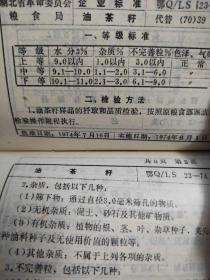 湖北省革命委员会 企业标准 鄂Q/LS 23-
粮食局 油茶籽 代替(70)39
一、等级标准
等级 水分% 杂质% 不完善粒% 色泽、气
上等 9.0以内 1.0以内 3.0以内 正常
中等 9.1—10.0 1.1—2.0 3.1—6.0
下等 10.1—11.0 2.1—3.0 6.1—9.0
二、检验方法
1.油茶籽样品的扦取和品质检验，按照原粮食部
检验操作规程执行。
批准日期：1974年7月16日 实施日期：1974年9月1
共2页 第2页
油茶籽 鄂Q/LS 23—74
2.杂质，包括以下几种：
(1)筛下物：通过直径3.0毫米筛孔的物质。
(2)无机杂质：泥土、砂石及其他矿物质。
(3)有机杂质：植物的根、茎、叶、余草籽、
种油料种子及无使用价值的颗粒等。
(4)其他杂质：不属于上列各项的杂质。
3.不完善粒，包括以下几种：